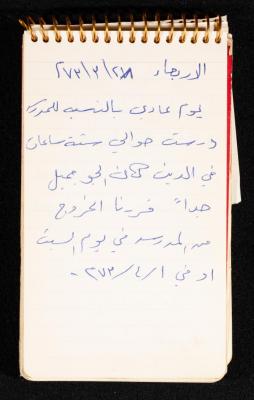 الاربعاء ٢٨/٣/٢٧٣
يوم عادي بالنسب للمدرسه
درست حوالي ستة ساعات
في الدين كان الجو جميل
جداً قررنا الخروج
من المدرسه في يوم السبت
او في ١/٤/٢٧٣ -